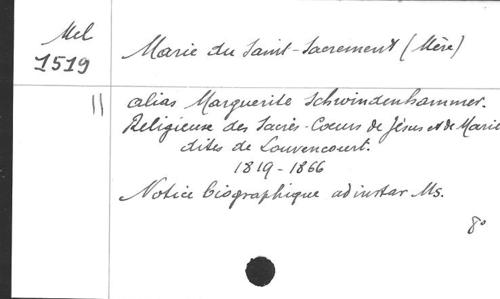 Mel
1519
Marie du Saint-Sacrement (Mère)
11
alias Marguerite Schwindenhammer.
Religieuse des Sacrés-Coeurs de Jésus et de Marie
dites de Louvencourt.
1819-1866
Notice biographique ad instar Ms.
8°